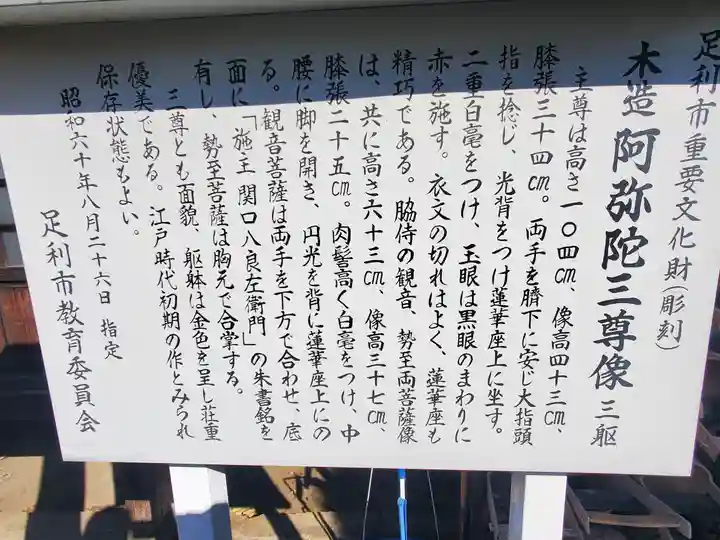 足利市重要文化財(彫刻)
木造 阿弥陀三尊像 三躯
主尊は高さ一〇四㎝、像高四十三㎝、
膝張三十四㎝。両手を臍下に安じ大指頭
指を捻じ、光背をつけ蓮華座上に坐す。
二重白毫をつけ、玉眼は黒眼のまわりに
赤を施す。衣文の切れはよく、蓮華座も
精巧である。脇侍の観音、勢至両菩薩像
は、共に高さ六十三㎝、像高三十七㎝、
膝張二十五㎝。肉髻高く白毫をつけ、中
腰に脚を開き、円光を背に蓮華座上にの
る。観音菩薩は両手を下方で合わせ、底
面に「施主 関口八良左衛門」の朱書銘を
有し、勢至菩薩は胸元で合掌する。
三尊とも面貌、躯躰は金色を呈し荘重
優美である。江戸時代初期の作とみられ
保存状態もよい。
昭和六十年八月二十六日 指定
足利市教育委員会